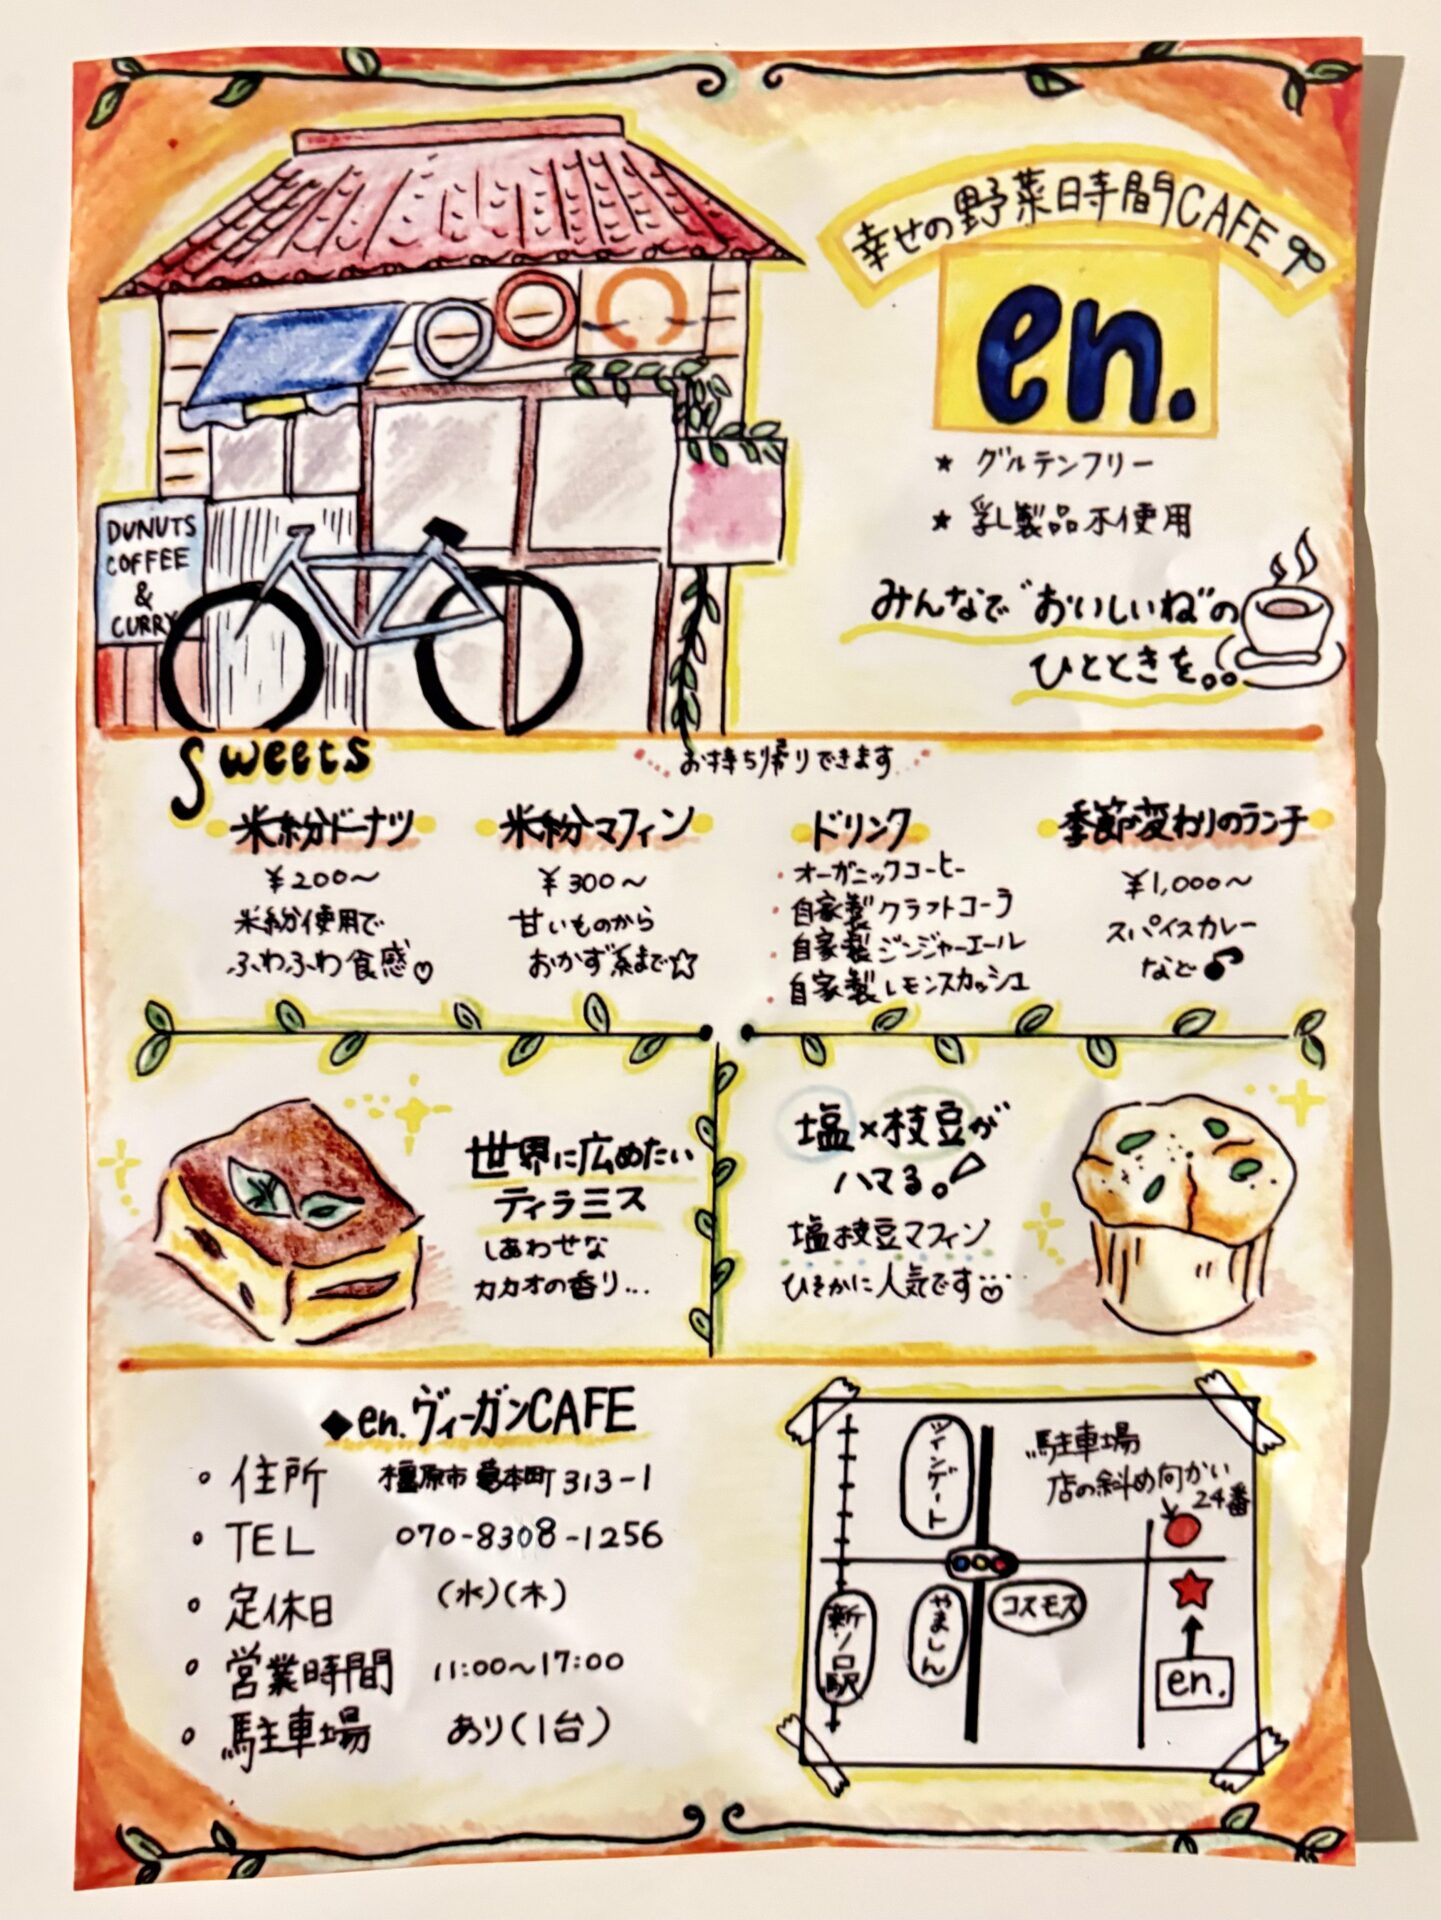 幸せの野菜時間CAFE
en.
★ グルテンフリー
★ 乳製品不使用
みんなで"おいしいね"の
ひとときを。。
DUNUTS
COFFEE
&
CURRY
Sweets
お持ち帰りできます
米粉ドーナツ
¥200〜
米粉使用で
ふわふわ食感♡
米粉マフィン
¥300〜
甘いものから
おかず系まで☆
ドリンク
・オーガニックコーヒー
・自家製クラフトコーラ
・自家製ジンジャーエール
・自家製レモンスカッシュ
季節変わりのランチ
¥1,000〜
スパイスカレー
など
世界に広めたい
ティラミス
しあわせな
カカオの香り...
塩×枝豆が
ハマる。
塩枝豆マフィン
ひそかに人気です…♡
◆en.ヴィーガンCAFE
・住所 橿原市葛本町313-1
・TEL 070-8308-1256
・定休日 (水)(木)
・営業時間 11:00〜17:00
・駐車場 あり(1台)
ツインゲート
駐車場
店の斜め向かい
24番
新ノ口駅
やましん
コスモス
en.